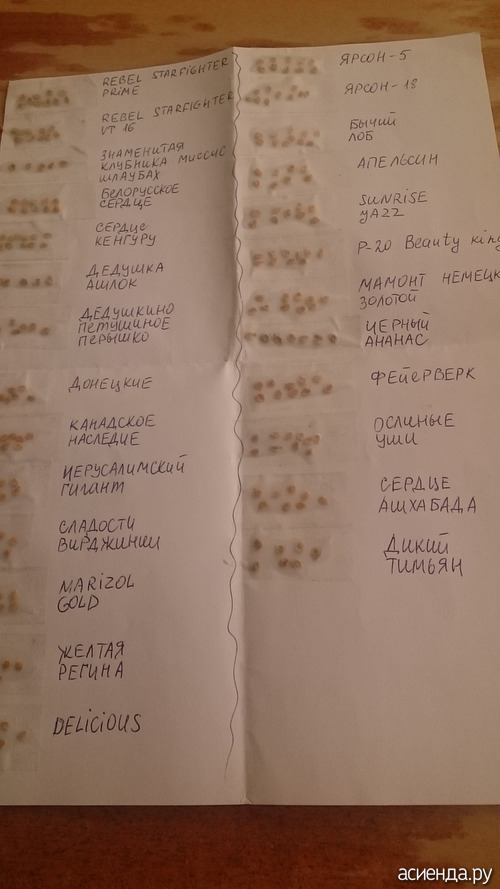 REBEL STARFIGHTER
PRIME
REBEL STARFIGHTER
VT 16
ЗНАМЕНИТАЯ
КЛУБНИКА МИССИС
ШЛАУБАХ
БЕЛОРУССКОЕ
СЕРДЦЕ
СЕРДЦЕ
КЕНГУРУ
ДЕДУШКА
АШЛОК
ДЕДУШКИНО
ПЕТУШИНОЕ
ПЕРЫШКО
ДОНЕЦКИЕ
КАНАДСКОЕ
НАСЛЕДИЕ
ИЕРУСАЛИМСКИЙ
ГИГАНТ
СЛАДОСТИ
ВИРДЖИНИИ
MARIZOL
GOLD
ЖЕЛТАЯ
РЕГИНА
DELICIOUS
ЯРСОН-5
ЯРСОН-18
БЫЧИЙ
ЛОБ
АПЕЛЬСИН
SUNRISE
JAZZ
P-20 Beauty king
МАМОНТ НЕМЕЦК
ЗОЛОТОЙ
ЧЕРНЫЙ
АНАНАС
ФЕЙЕРВЕРК
ОСЛИНЫЕ
УШИ
СЕРДЦЕ
АШХАБАДА
ДИКИЙ
ТИМЬЯН
асиенда.ру